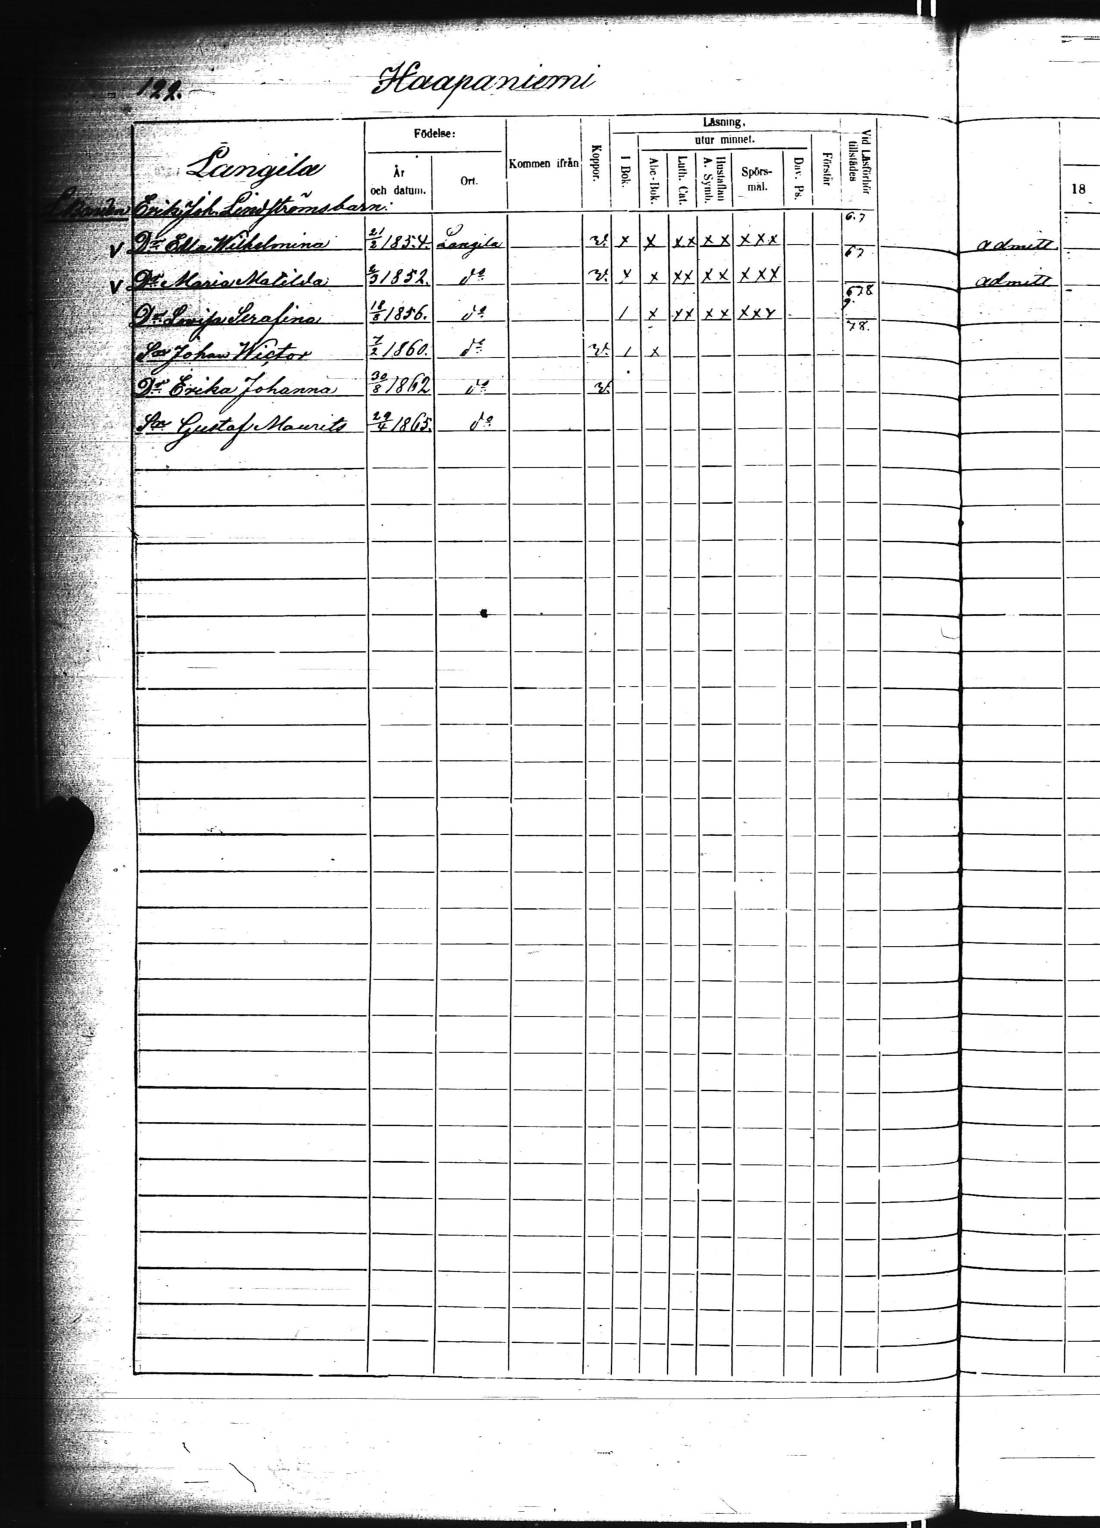 122.
Haapaniemi
Födelse:
Läsning,
utur minnet.
Kommen ifrån
Koppor.
I Bok.
Abc-Bok.
Luth. Cat.
Hustaflan A. Symb.
Spörs-
mål.
Dav. Ps.
Förstår
Vid Läsförhör tillstädes
År
och datum.
Ort.
18
Langila
Erik Joh. Lindströms barn:
6.7
V Dr. Edla Wilhelmina 21/2 1854. Langila v. x x xx xx xxx 67 admitt
V Dr. Maria Matilda 1852. do v. x x xx xx xxx 678 admitt
Dr. Lovisa Serafina 18/8 1856. do / x xx xx xxx 78.
Son Johan Wictor 7/2 1860. do v. / x
Dr. Erika Johanna 30/8 1862 do v.
Son Gustaf Maurits 29/4 1865. do